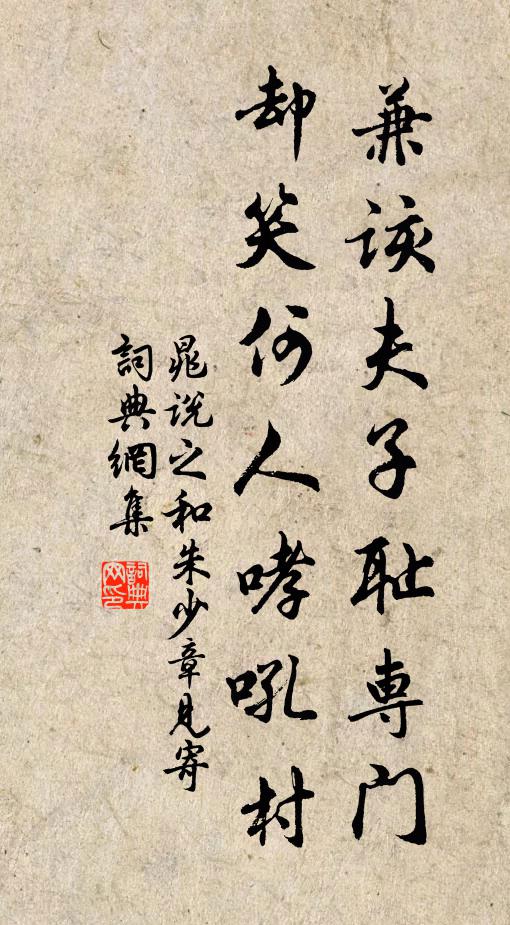 兼該夫子耻専門
却笑何人哮吼村
晁説之和朱少章見寄
詞典網集
詞典网印